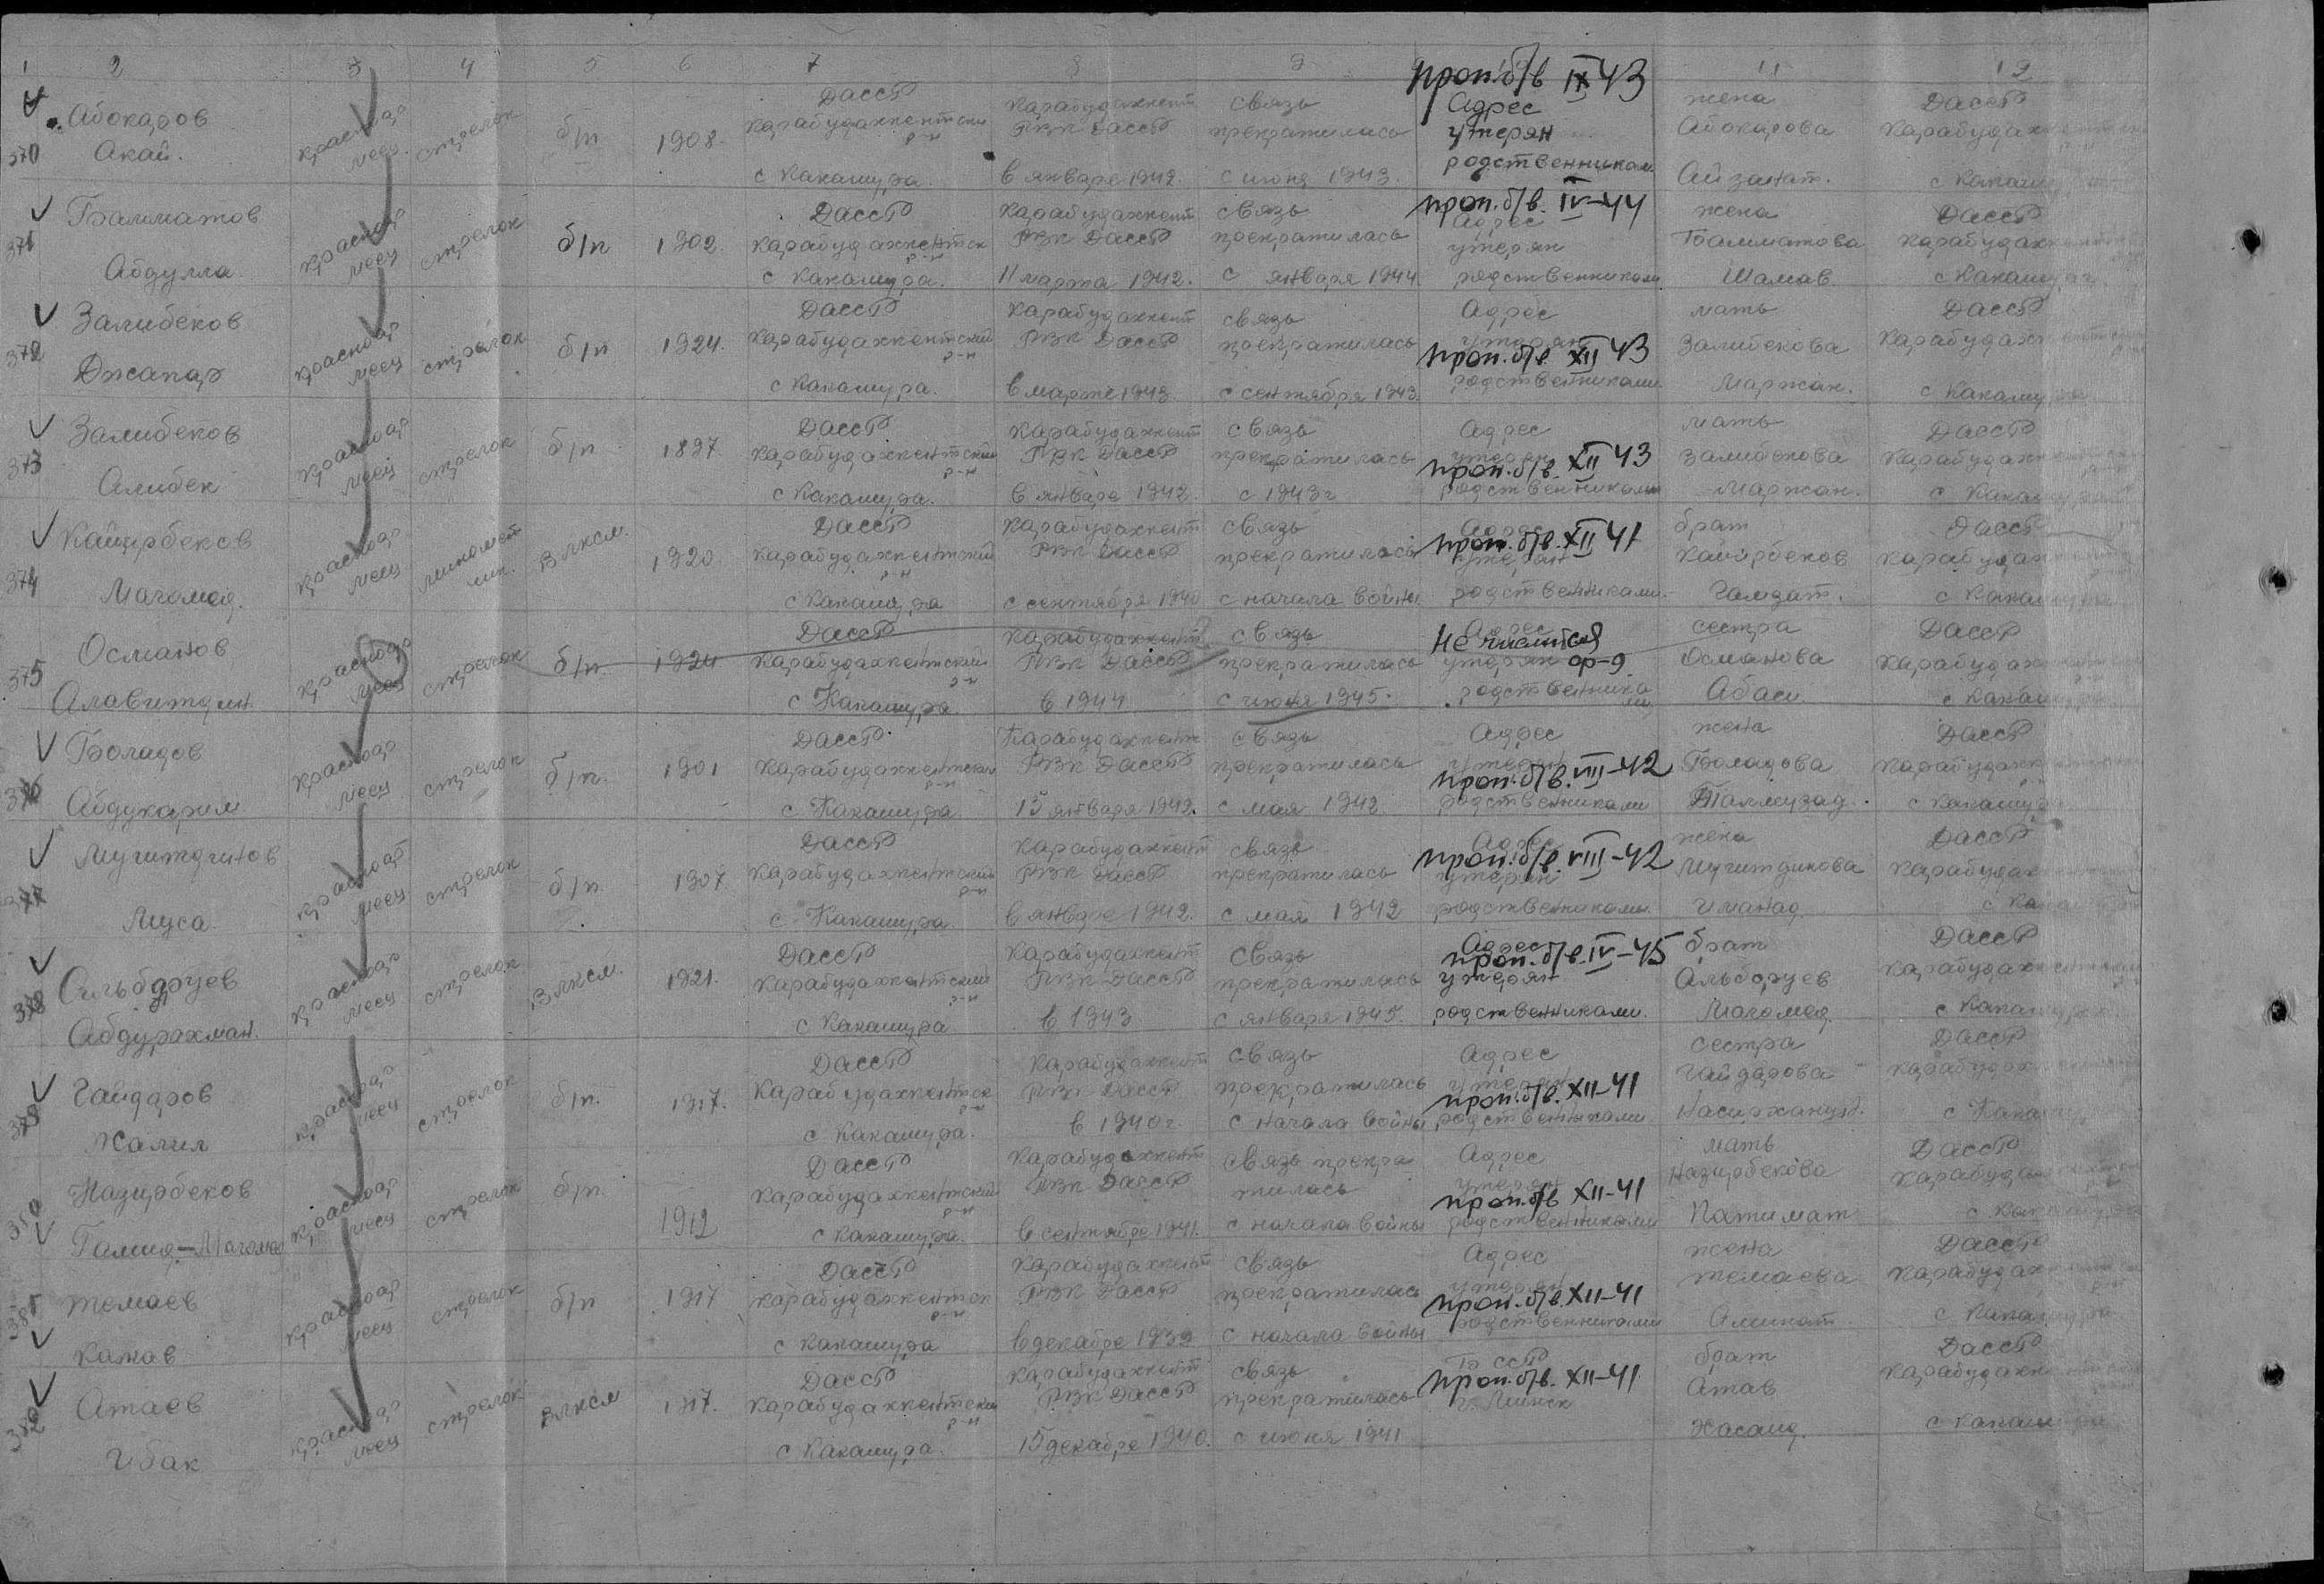 1 2 3 4 5 6 7 8 9 11 12
370 Абокаров Акай. красноармеец стрелок б/п 1908. ДАССР Карабудахкентски р-н с Какашура. Карабудахкент РВК ДАССР в январе 1942. связь прекратилась с июня 1943. проп. б/в IX 43 Адрес утерян родственникам жена Абокарова Айзанат. ДАССР Карабудах с Какаш
371 Бамматов Абдулла красноармеец стрелок б/п 1902. ДАССР Карабудахкентск р-н с Какашура. Карабудахкент РВК ДАССР 11 марта 1942. связь прекратилась с января 1944 проп. б/в. IV-44 Адрес утерян родственникам жена Бамматова Шамав ДАССР Карабудах с Какашура
372 Залибеков Джапар красноармеец стрелок б/п 1924. ДАССР Карабудахкентский р-н с Какашура. Карабудахкент РВК ДАССР в марте 1943 связь прекратилась с сентября 1943. Адрес утерян проп. б/в XII 43 родственниками. мать Залибекова Маржан. ДАССР Карабудахк с Какашура
373 Залибеков Алибек красноармеец стрелок б/п 1897 ДАССР Карабудахкентский р-н с Какашура. Карабудахкент РВК ДАССР в январе 1942. связь прекратилась с 1943 г Адрес утерян проп. б/в. XII 43 родственниками мать Залибекова Маржан. ДАССР Карабудах с Какашура
374 Каирбеков Магомед. красноармеец минометчик. Влксм. 1920 ДАССР Карабудахкентский р-н с Какашура Карабудахкент РВК ДАССР с сентября 1940 связь прекратилась с начала войны Адрес проп. б/в. XII 41 утерян родственниками. брат Каирбеков Гамзат. ДАССР Карабудах с Какашура
375 Османов Алавитдин. красноармеец стрелок б/п. 1924 ДАССР Карабудахкентский р-н с Какашура Карабудахкент РВК ДАССР в 1944 связь прекратилась с июня 1945. Адрес Не числится утерян ор-д родственниками сестра Османова Абаси ДАССР Карабудах с Какаш
376 Боладов Абдукарим красноармеец стрелок б/п. 1901 ДАССР Карабудахкентский р-н с Какашура Карабудахкент РВК ДАССР 15 января 1942. связь прекратилась с мая 1942 Адрес утерян проп. б/в. VIII-42 родственниками жена Боладова ДАССР Карабудахк с Какашура
377 Мугитдинов Муса красноармеец стрелок б/п. 1907 ДАССР Карабудахкентский р-н с Какашура Карабудахкент РВК ДАССР в январе 1942. связь прекратилась с мая 1942 Адрес проп. б/в. VIII-42 утерян родственниками. жена Мугитдинова Иманад ДАССР Карабудах с Ка
378 Альборуев Абдурахман. красноармеец стрелок Влксм. 1921. ДАССР Карабудахкентский р-н с Какашура Карабудахкент РВК ДАССР в 1943 связь прекратилась с января 1945. Адрес проп. б/в. IV-45 утерян родственниками. брат Альборуев Магомед. ДАССР Карабудах с Какашура
379 Гайдаров Халил красноармеец стрелок б/п. 1917. ДАССР Карабудахкентск р-н с Какашура. Карабудахкент РВК ДАССР в 1940 г. связь прекратилась с начала войны Адрес утерян проп. б/в. XII-41 родственниками сестра Гайдарова ДАССР Карабудах с Кака
380 Назирбеков Гамид-Магомед красноармеец стрелок б/п. 1912 ДАССР Карабудахкентский р-н с Какашура. Карабудахкент РВК ДАССР в сентябре 1941. связь прекратилась с начала войны Адрес утерян проп. б/в XII-41 родственниками мать Назирбекова Патимат ДАССР Карабудах с Какашура
381 Темаев Капав красноармеец стрелок б/п 1917 ДАССР Карабудахкентск р-н с Какашура Карабудахкент РВК ДАССР в декабре 1939 связь прекратилась с начала войны Адрес утерян проп. б/в. XII-41 родственниками жена Темаева Аминат. ДАССР Карабудах с Какашура
382 Атаев Ибак красноармеец стрелок Влксм 1917. ДАССР Карабудахкентский р-н с Какашура. Карабудахкент РВК ДАССР 15 декабре 1940. связь прекратилась с июня 1941 Б ССР проп. б/в. XII-41 г. Минск брат Атав Хасаид. ДАССР Карабудахк с Какашура